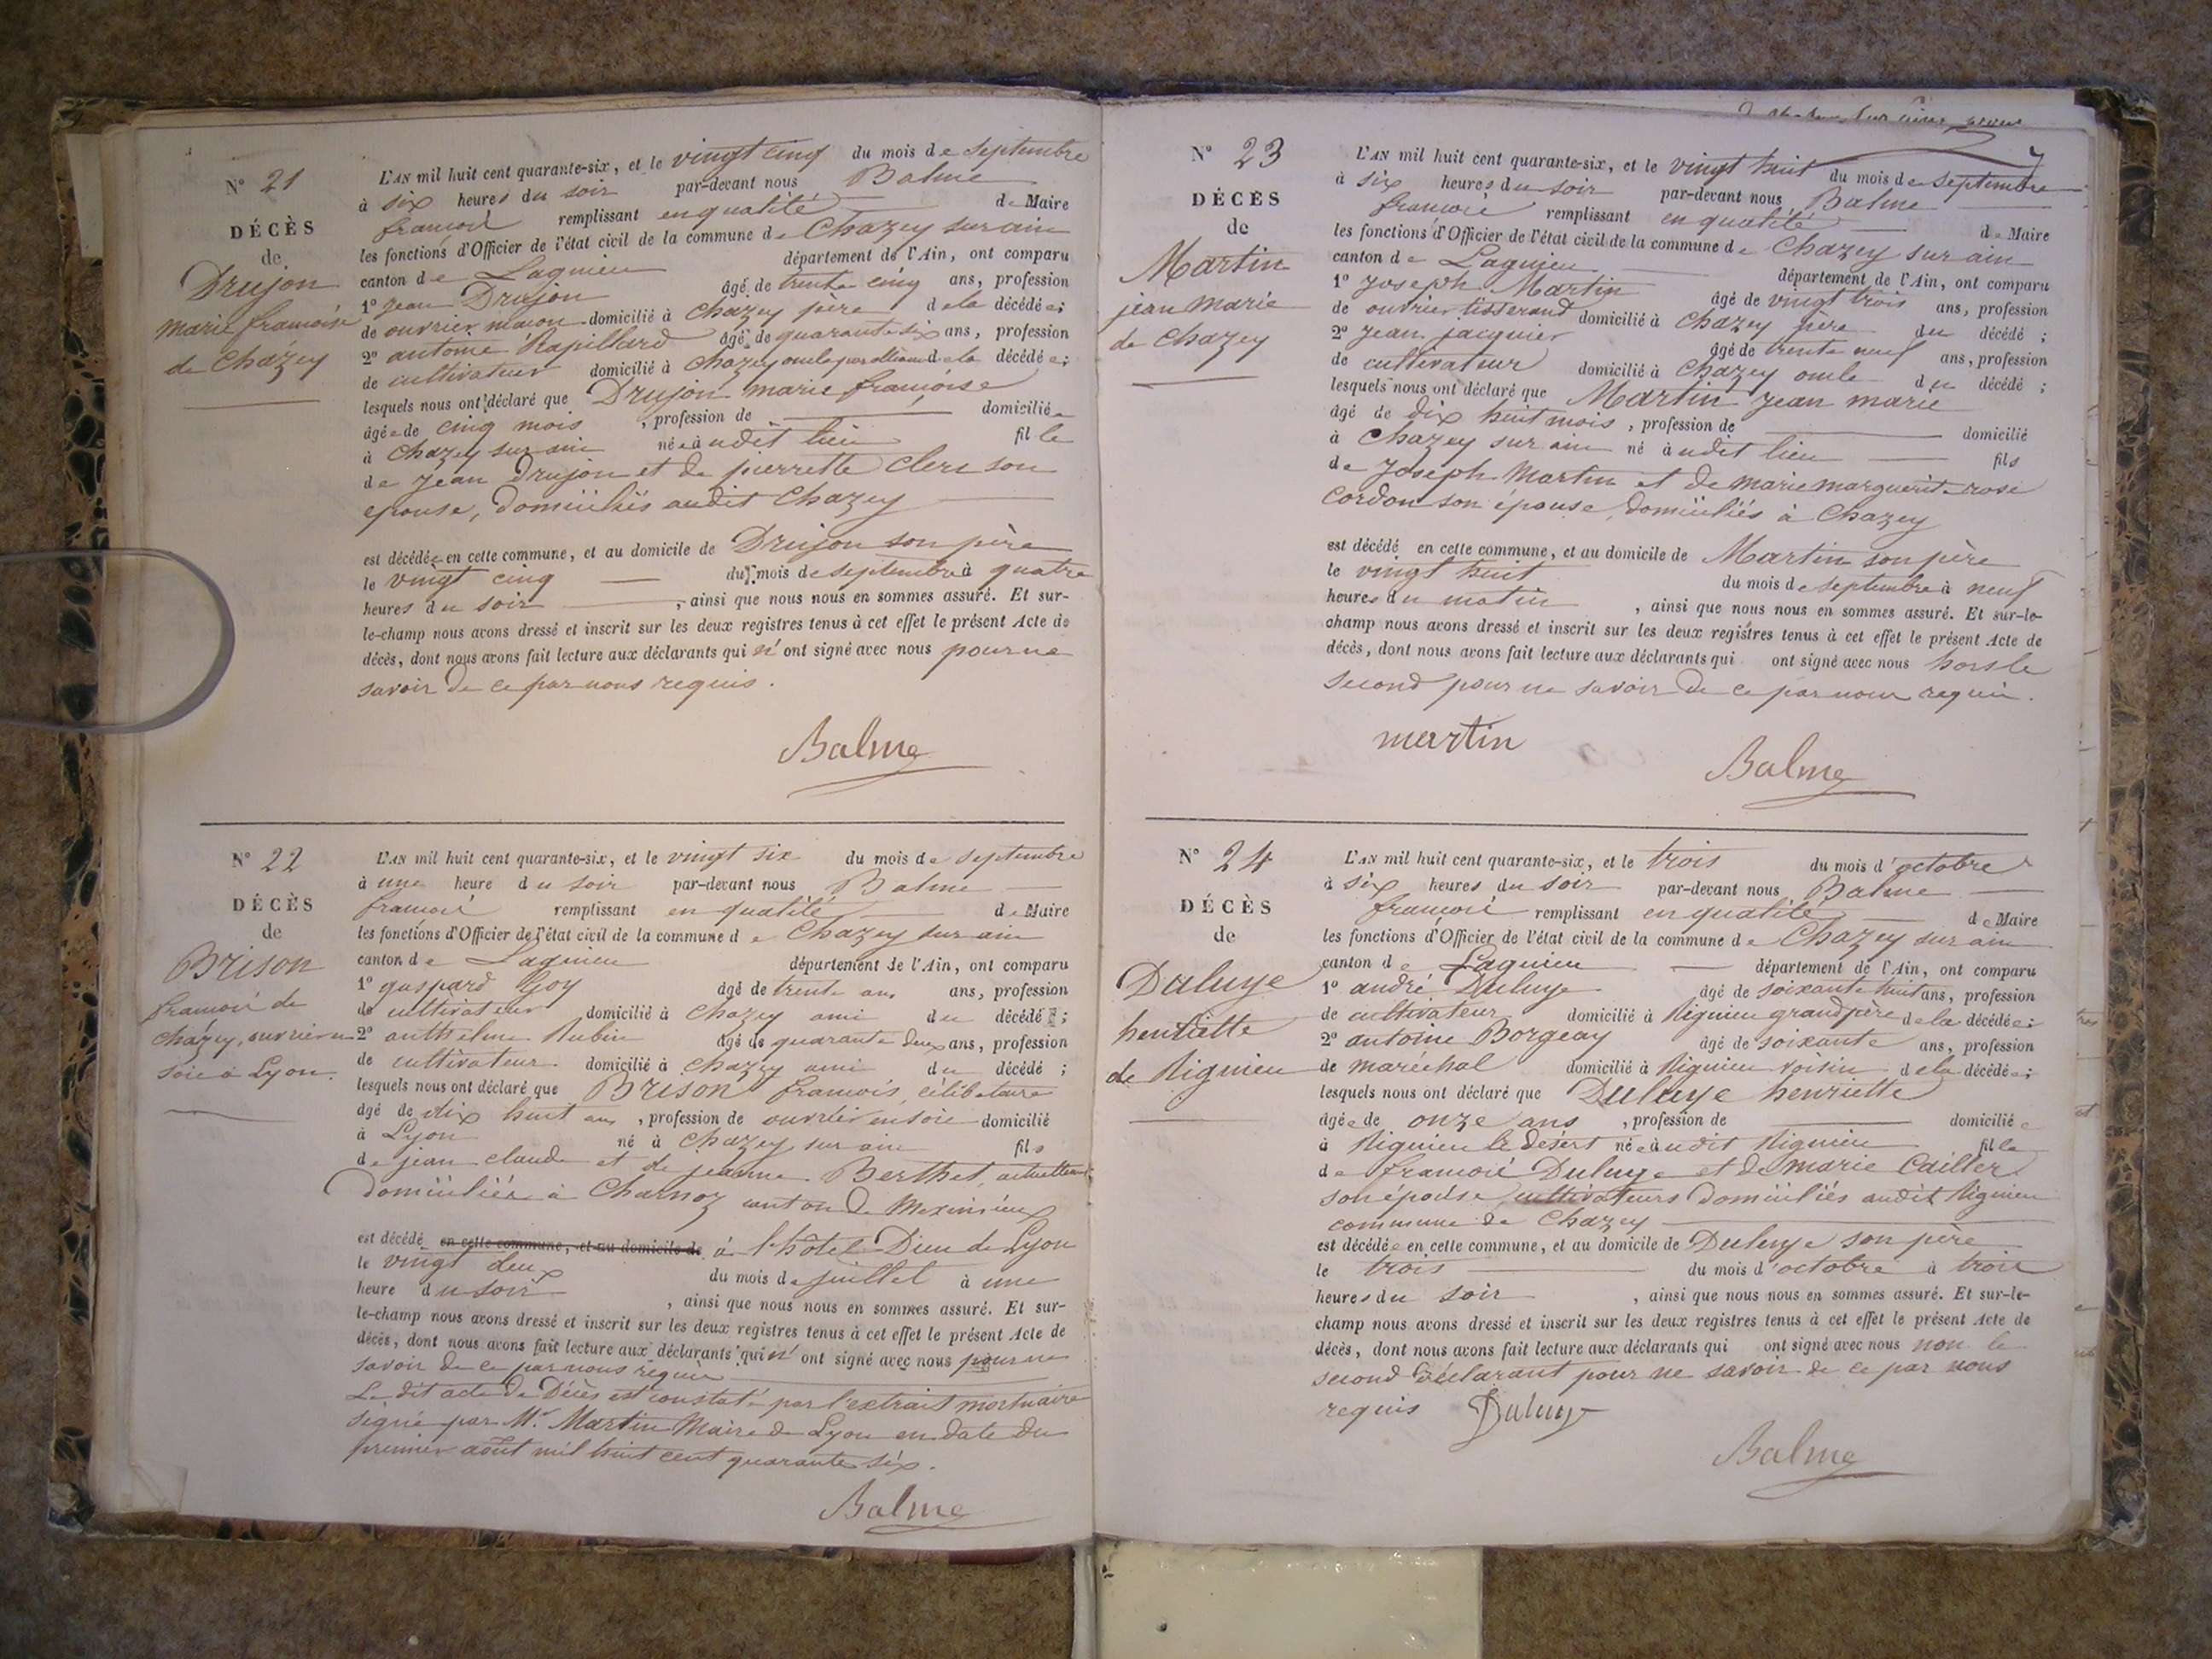 N° 21
DÉCÈS
de
Drujon
marie françoise
de Chazey
L'AN mil huit cent quarante-six, et le vingt cinq du mois de septembre
à six heures du soir par-devant nous Balme
françois remplissant en qualité de Maire
les fonctions d'Officier de l'état civil de la commune de Chazey sur ain
canton de Lagnieu département de l'Ain, ont comparu
1° jean Drujon âgé de trente cinq ans, profession
de ouvrier maçon domicilié à Chazey père de la décédée;
2° antoine Rapillard âgé de quarante six ans, profession
de cultivateur domicilié à Chazey oncle par alliance de la décédée;
lesquels nous ont déclaré que Drujon marie françoise
âgée de cinq mois, profession de domiciliée
à Chazey sur ain née audit lieu fille
de jean Drujon et de pierrette Clerc son
epouse, domiciliés audit Chazey
est décédée en cette commune, et au domicile de Drujon son père
le vingt cinq du mois de septembre à quatre
heures du soir, ainsi que nous nous en sommes assuré. Et sur-
le-champ nous avons dressé et inscrit sur les deux registres tenus à cet effet le présent Acte de
décès, dont nous avons fait lecture aux déclarants qui n'ont signé avec nous pour ne
savoir de ce par nous requis.
Balme
N° 22
DÉCÈS
de
Brison
françois de
Chazey, ouvrier en
soie à Lyon.
L'AN mil huit cent quarante-six, et le vingt six du mois de septembre
à une heure du soir par-devant nous Balme
françois remplissant en qualité de Maire
les fonctions d'Officier de l'état civil de la commune de Chazey sur ain
canton de Lagnieu département de l'Ain, ont comparu
1° gaspard Goy âgé de trente ans ans, profession
de cultivateur domicilié à Chazey ami du décédé;
2° anthelme Rubin âgé de quarante deux ans, profession
de cultivateur domicilié à Chazey ami du décédé;
lesquels nous ont déclaré que Brison françois, célibataire
âgé de dix huit ans, profession de ouvrier en soie domicilié
à Lyon né à Chazey sur ain fils
de jean claude et de jeanne Berthet, actuellement
domiciliés à Charnoz canton de Meximieux
est décédé en cette commune, et au domicile de à l'hôtel Dieu de Lyon
le vingt deux du mois de juillet à une
heure du soir, ainsi que nous nous en sommes assuré. Et sur-
le-champ nous avons dressé et inscrit sur les deux registres tenus à cet effet le présent Acte de
décès, dont nous avons fait lecture aux déclarants qui n'ont signé avec nous pour ne
savoir de ce par nous requis
Le dit acte de Décès est constaté par l'extrait mortuaire
signé par Mr. Martin Maire de Lyon en date du
premier août mil huit cent quarante six.
Balme
N° 23
DÉCÈS
de
Martin
jean marie
de Chazey
L'AN mil huit cent quarante-six, et le vingt huit du mois de septembre
à six heures du soir par-devant nous Balme
françois remplissant en qualité de Maire
les fonctions d'Officier de l'état civil de la commune de Chazey sur ain
canton de Lagnieu département de l'Ain, ont comparu
1° joseph Martin âgé de vingt trois ans, profession
de ouvrier tisserand domicilié à Chazey père du décédé;
2° jean jacquier âgé de trente neuf ans, profession
de cultivateur domicilié à Chazey oncle du décédé;
lesquels nous ont déclaré que Martin jean marie
âgé de dix huit mois, profession de domicilié
à Chazey sur ain né audit lieu fils
de joseph Martin et de marie marguerite rose
Cordon son épouse, domiciliés à Chazey
est décédé en cette commune, et au domicile de Martin son père
le vingt huit du mois de septembre à neuf
heures du matin, ainsi que nous nous en sommes assuré. Et sur-le-
champ nous avons dressé et inscrit sur les deux registres tenus à cet effet le présent Acte de
décès, dont nous avons fait lecture aux déclarants qui ont signé avec nous hors le
second pour ne savoir de ce par nous requis.
martin
Balme
N° 24
DÉCÈS
de
Duluye
henriette
de Rignieu
L'AN mil huit cent quarante-six, et le trois du mois d'octobre
à six heures du soir par-devant nous Balme
françois remplissant en qualité de Maire
les fonctions d'Officier de l'état civil de la commune de Chazey sur ain
canton de Lagnieu département de l'Ain, ont comparu
1° andré Duluye âgé de soixante huit ans, profession
de cultivateur domicilié à Rignieu grand père de la décédée;
2° antoine Borgeay âgé de soixante ans, profession
de maréchal domicilié à Rignieu voisin de la décédée;
lesquels nous ont déclaré que Duluye henriette
âgée de onze ans, profession de domiciliée
à Rignieu le désert née audit Rignieu fille
de françois Duluye et de marie Cailler
son épouse cultivateurs domiciliés audit Rignieu
commune de Chazey
est décédée en cette commune, et au domicile de Duluye son père
le trois du mois d'octobre à trois
heures du soir, ainsi que nous nous en sommes assuré. Et sur-le-
champ nous avons dressé et inscrit sur les deux registres tenus à cet effet le présent Acte de
décès, dont nous avons fait lecture aux déclarants qui ont signé avec nous non le
second déclarant pour ne savoir de ce par nous
requis Duluye
Balme